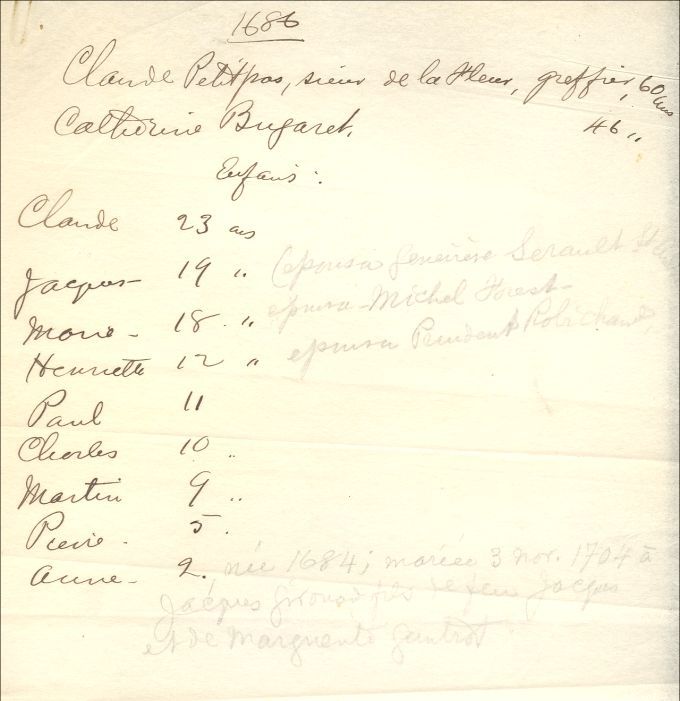 1686
Claude Petitpas, sieur de la Fleur, greffier, 60 ans
Catherine Bugaret, 46 "
Enfans :
Claude 23 ans
Jacques 19 " (épousa Geneviève Serault St
Marie - 18 " épousa - Michel Forest -
Henriette 12 " épousa Prudent Robichaud,
Paul 11
Charles 10 "
Martin 9 "
Pierre - 5 .
Anne - 2. née 1684; mariée 3 nov. 1704 à
Jacques Girouard fils de feu Jacques
et de Marguerite Gautrot